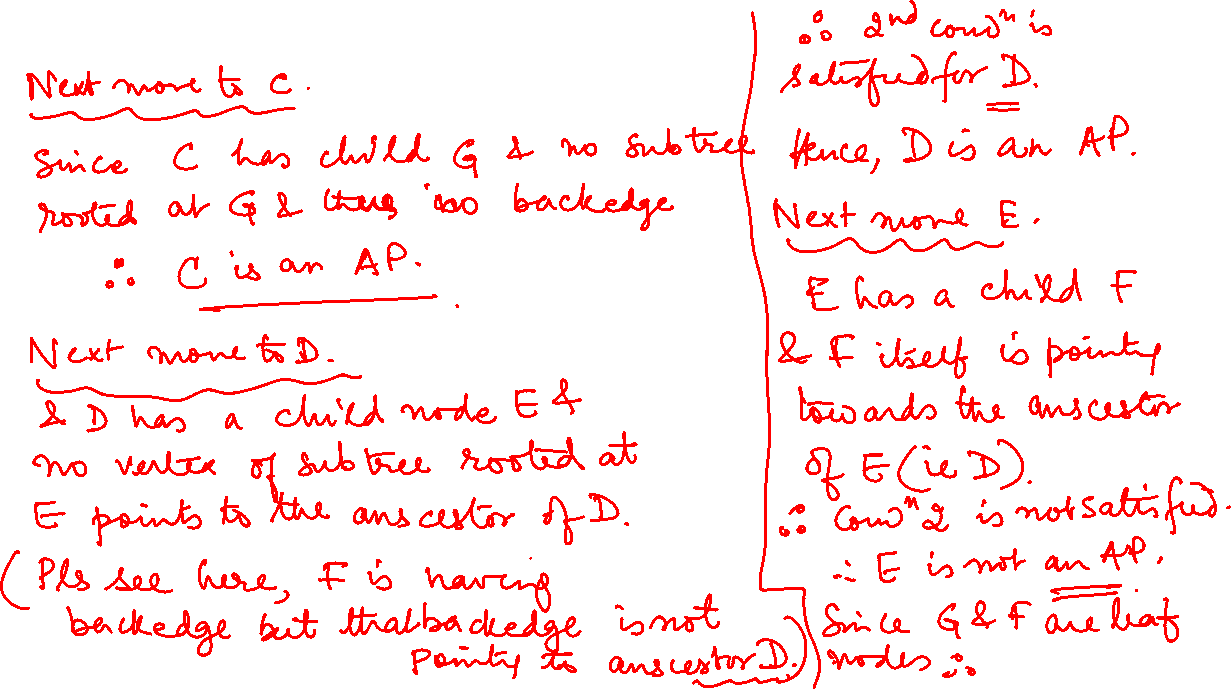 Next move to C.
Since C has child G & no subtree
rooted at G & thus no backedge
∴ C is an AP.
Next move to D.
& D has a child node E &
no vertex of subtree rooted at
E points to the anscestor of D.
(Pls see here, F is having
backedge but that backedge is not
pointg to anscestor D.)
∴ 2nd condn is
satisfied for D.
Hence, D is an AP.
Next move E.
E has a child F
& F itself is pointg
towards the anscestor
of E (ie D).
∴ condn 2 is not satisfied.
∴ E is not an AP.
Since G & F are leaf
nodes ∴